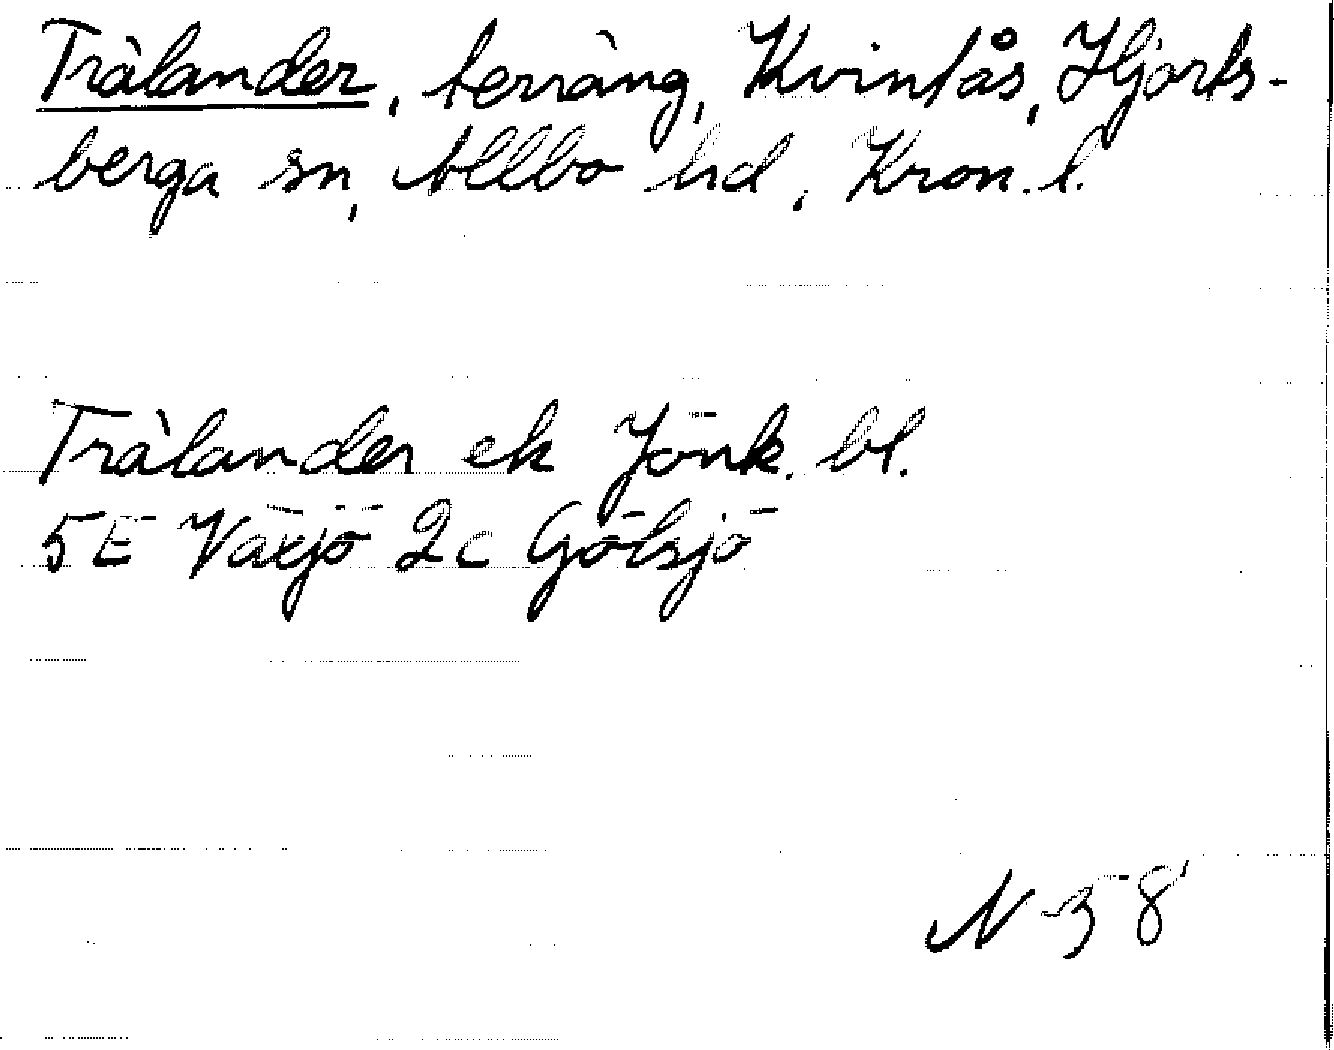 Tràlander, terräng, Kvinlås, Hjorts-
berga sn, Allbo hd, Kron. l.
Tràlander ek Jönk. bl.
5E Växjö 2c Götsjö
N 58